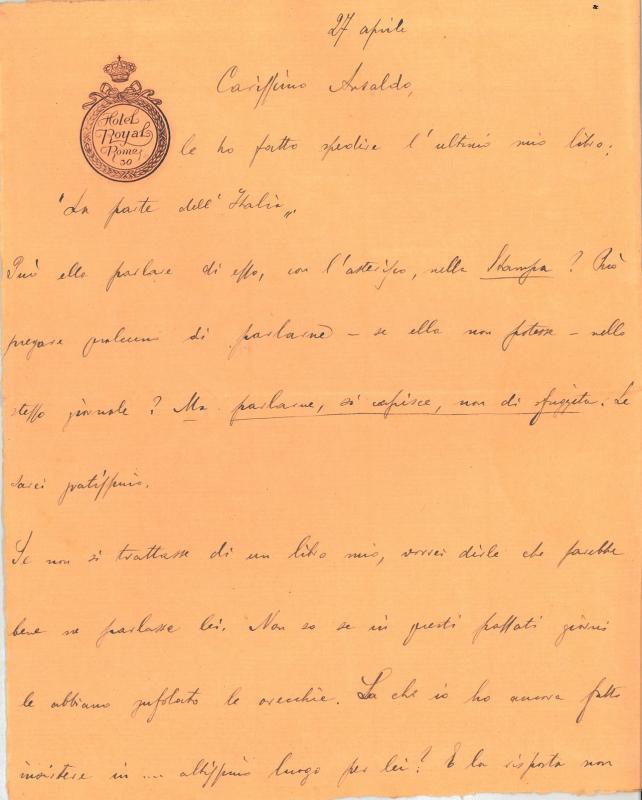 27 aprile
Hotel
Royal
Rome
30
Carissimo Ansaldo,
le ho fatto spedire l'ultimo mio libro:
"La parte dell'Italia".
Può ella parlare di esso, con l'asterisco, nella Stampa? Può
pregare qualcuno di parlarne – se ella non potesse – nello
stesso giornale? Ma parlarne, si capisce, non di sfuggita. Le
sarei gratissimo.
Se non si trattasse di un libro mio, vorrei dirle che sarebbe
bene ne parlasse lei. Non so se in questi passati giorni
le abbiano zufolato le orecchie. Sa che io ho ancora fatto
insistere in .... altissimo luogo per lei? E la risposta non